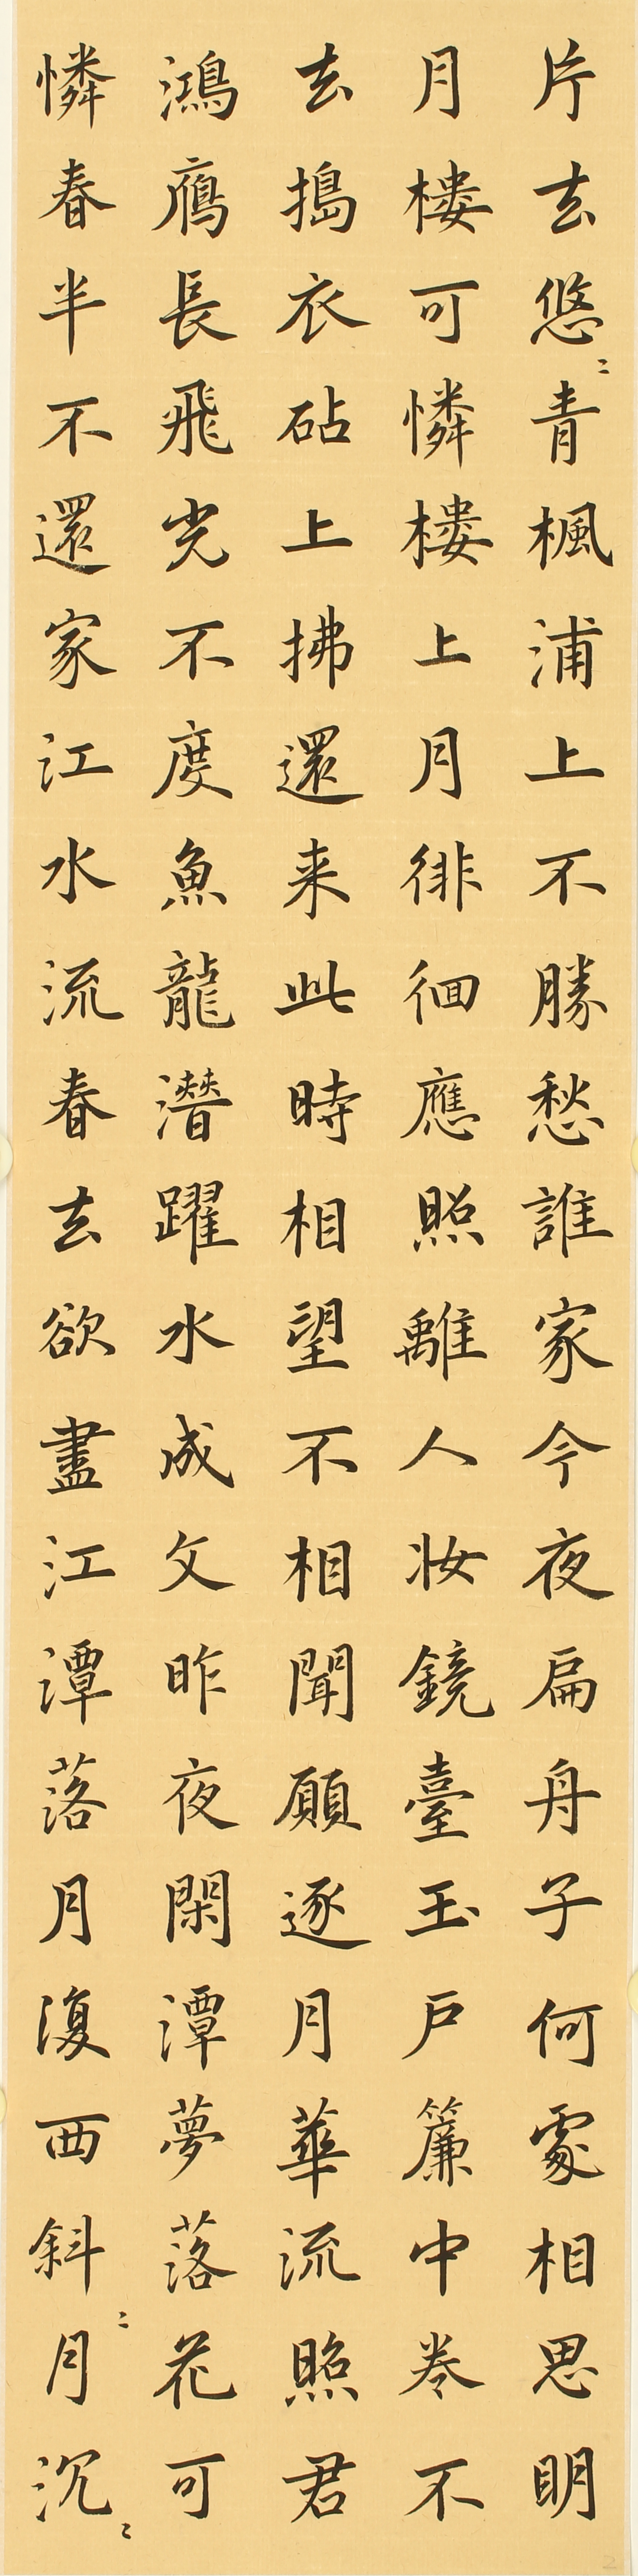 片去悠〻青楓浦上不勝愁誰家今夜扁舟子何處相思明
月樓可憐樓上月徘徊應照離人妝鏡臺玉戶簾中卷不
去搗衣砧上拂還来此時相望不相聞願逐月華流照君
鴻鴈長飛光不度魚龍潛躍水成文昨夜閑潭夢落花可
憐春半不還家江水流春去欲盡江潭落月復西斜〻月沉〻